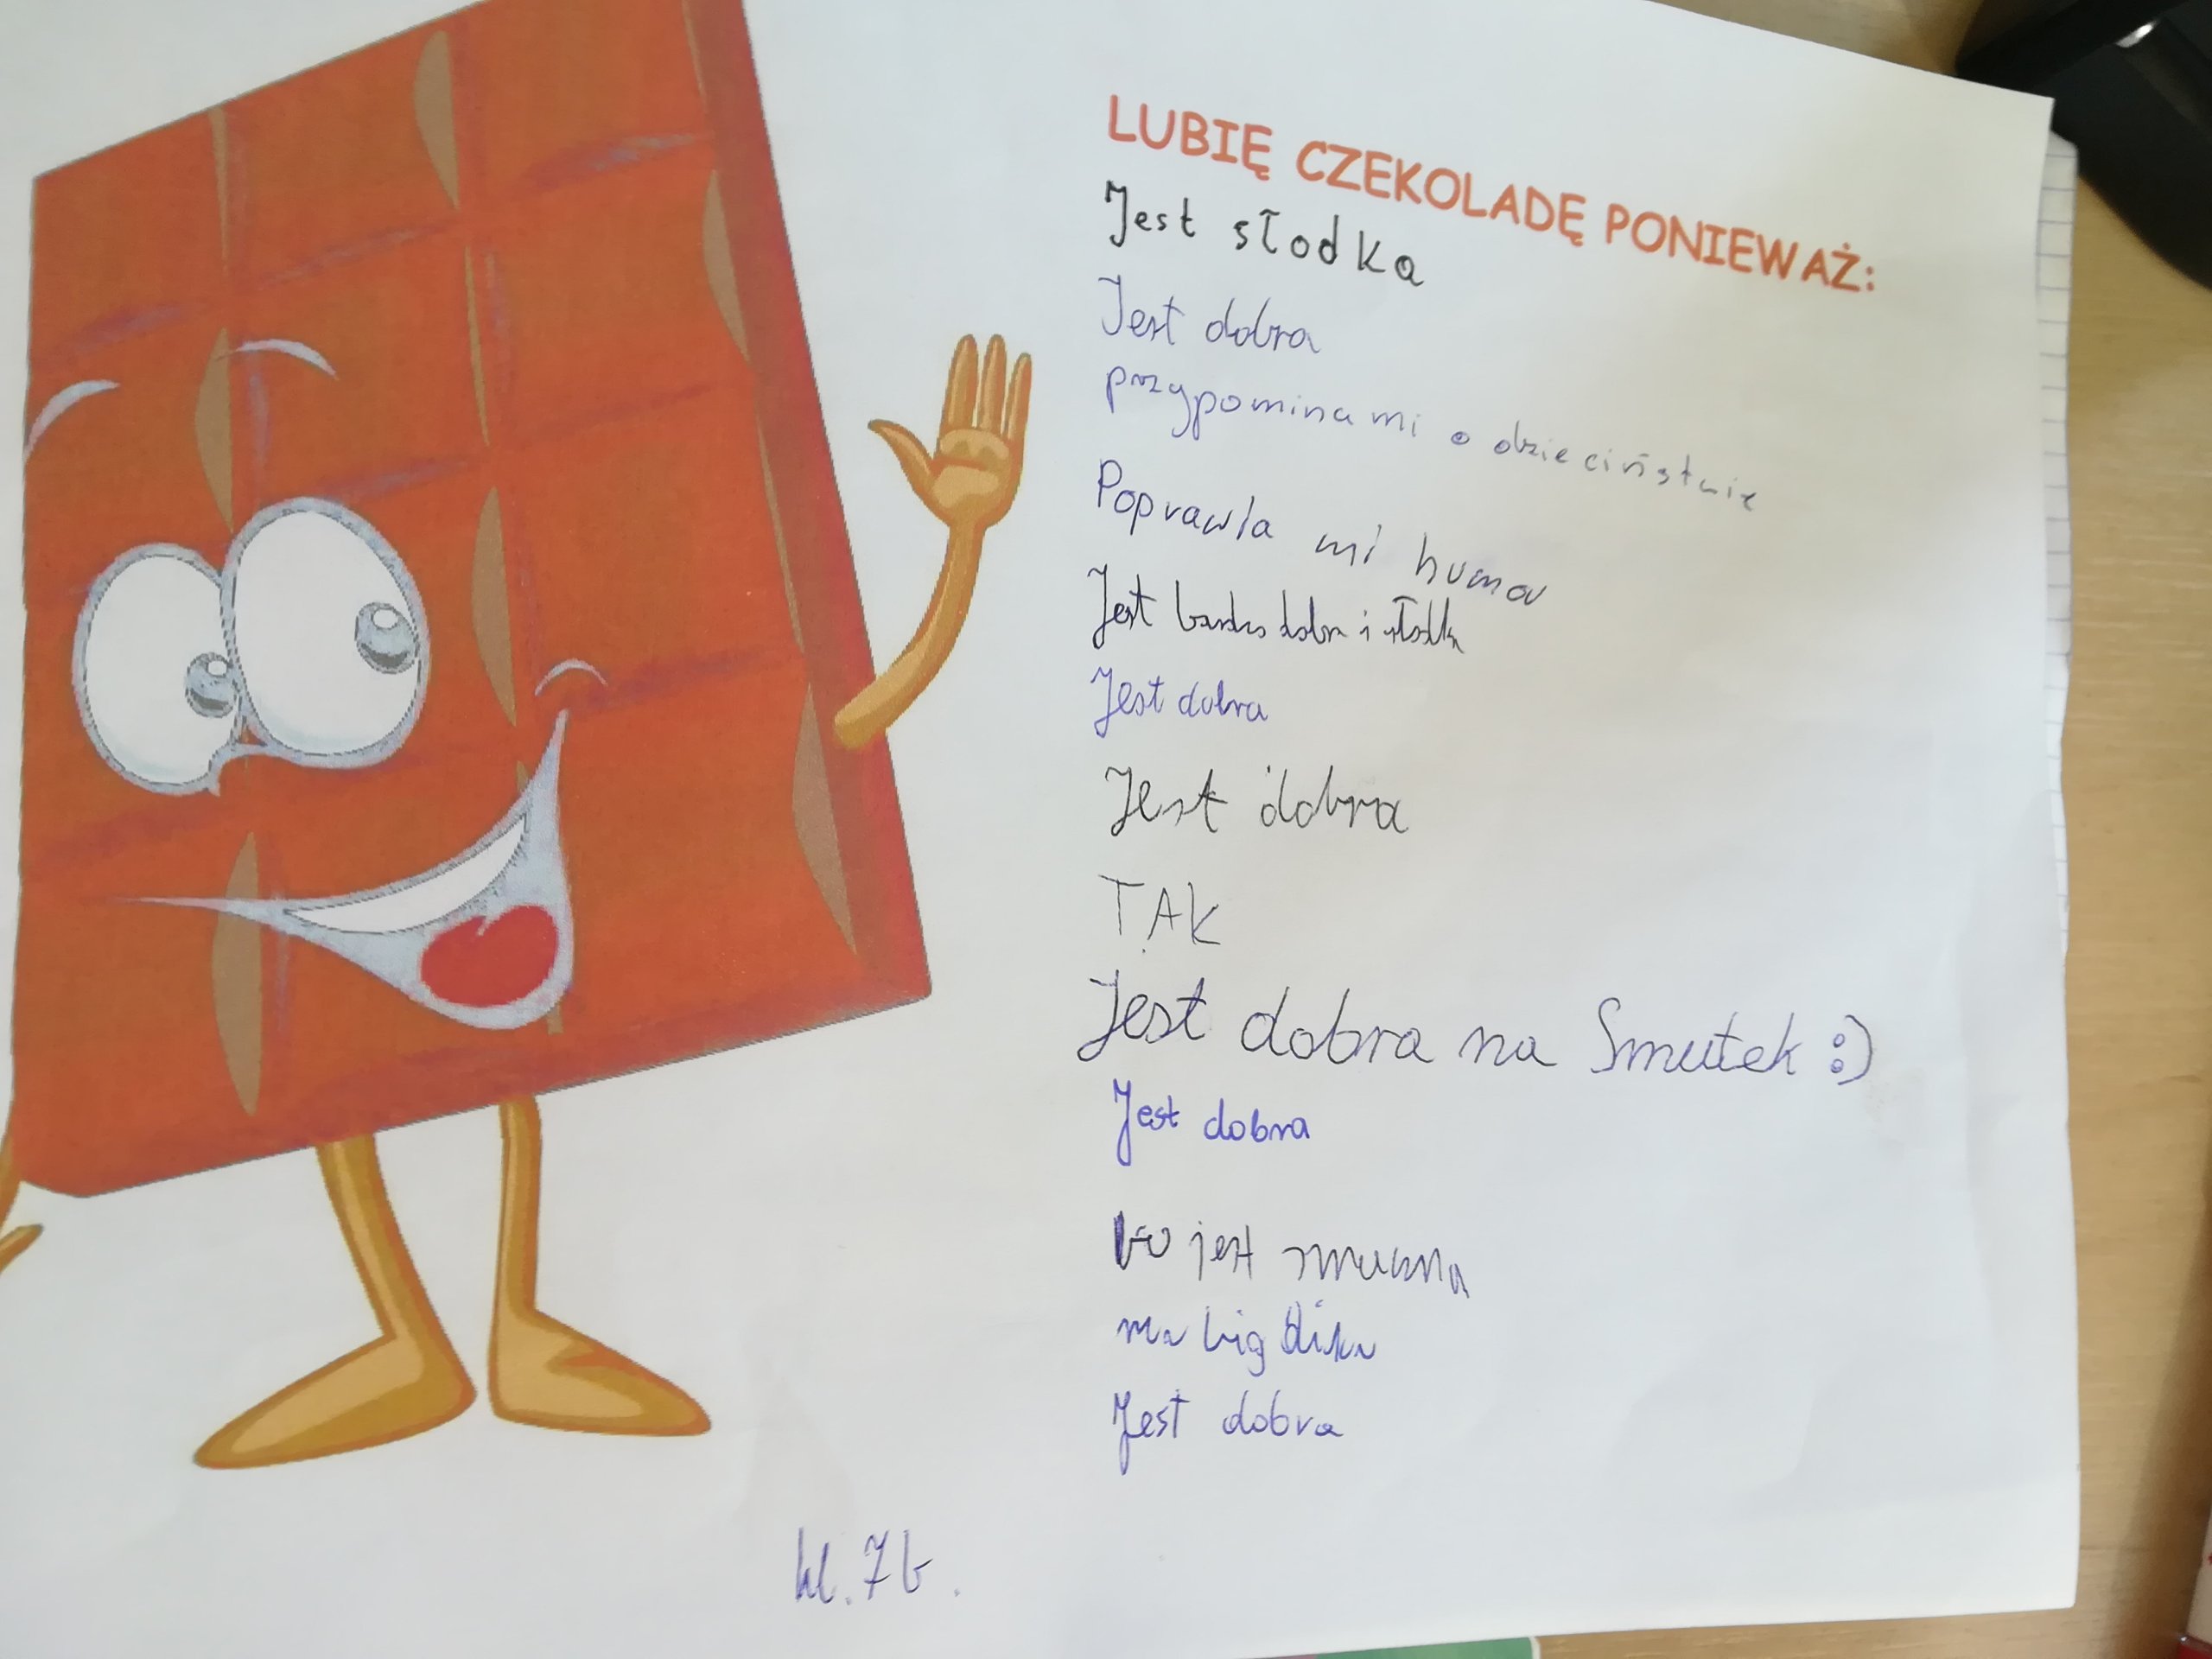 LUBIĘ CZEKOLADĘ PONIEWAŻ:
Jest słodka
Jest dobra
przypomina mi o dzieciństwie
Poprawia mi humor
Jest bardzo dobra i słodka
Jest dobra
Jest dobra
TAK
Jest dobra na Smutek :)
Jest dobra
bo jest smaczna
ma big
Jest dobra
kl. 7b.